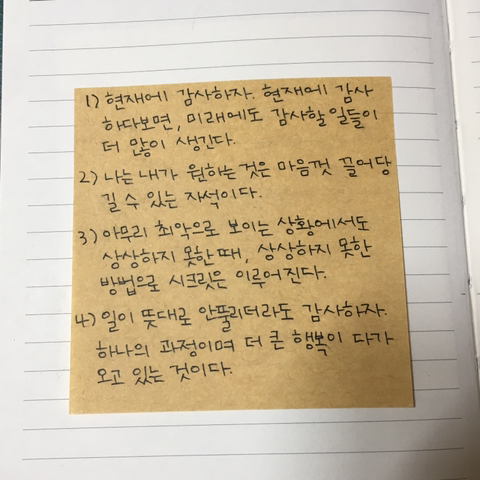 1) 현재에 감사하자. 현재에 감사
하다보면, 미래에도 감사할 일들이
더 많이 생긴다.
2) 나는 내가 원하는 것은 마음껏 끌어당
길 수 있는 자석이다.
3) 아무리 최악으로 보이는 상황에서도
상상하지 못한 때, 상상하지 못한
방법으로 시크릿은 이루어진다.
4) 일이 뜻대로 안풀리더라도 감사하자.
하나의 과정이며 더 큰 행복이 다가
오고 있는 것이다.